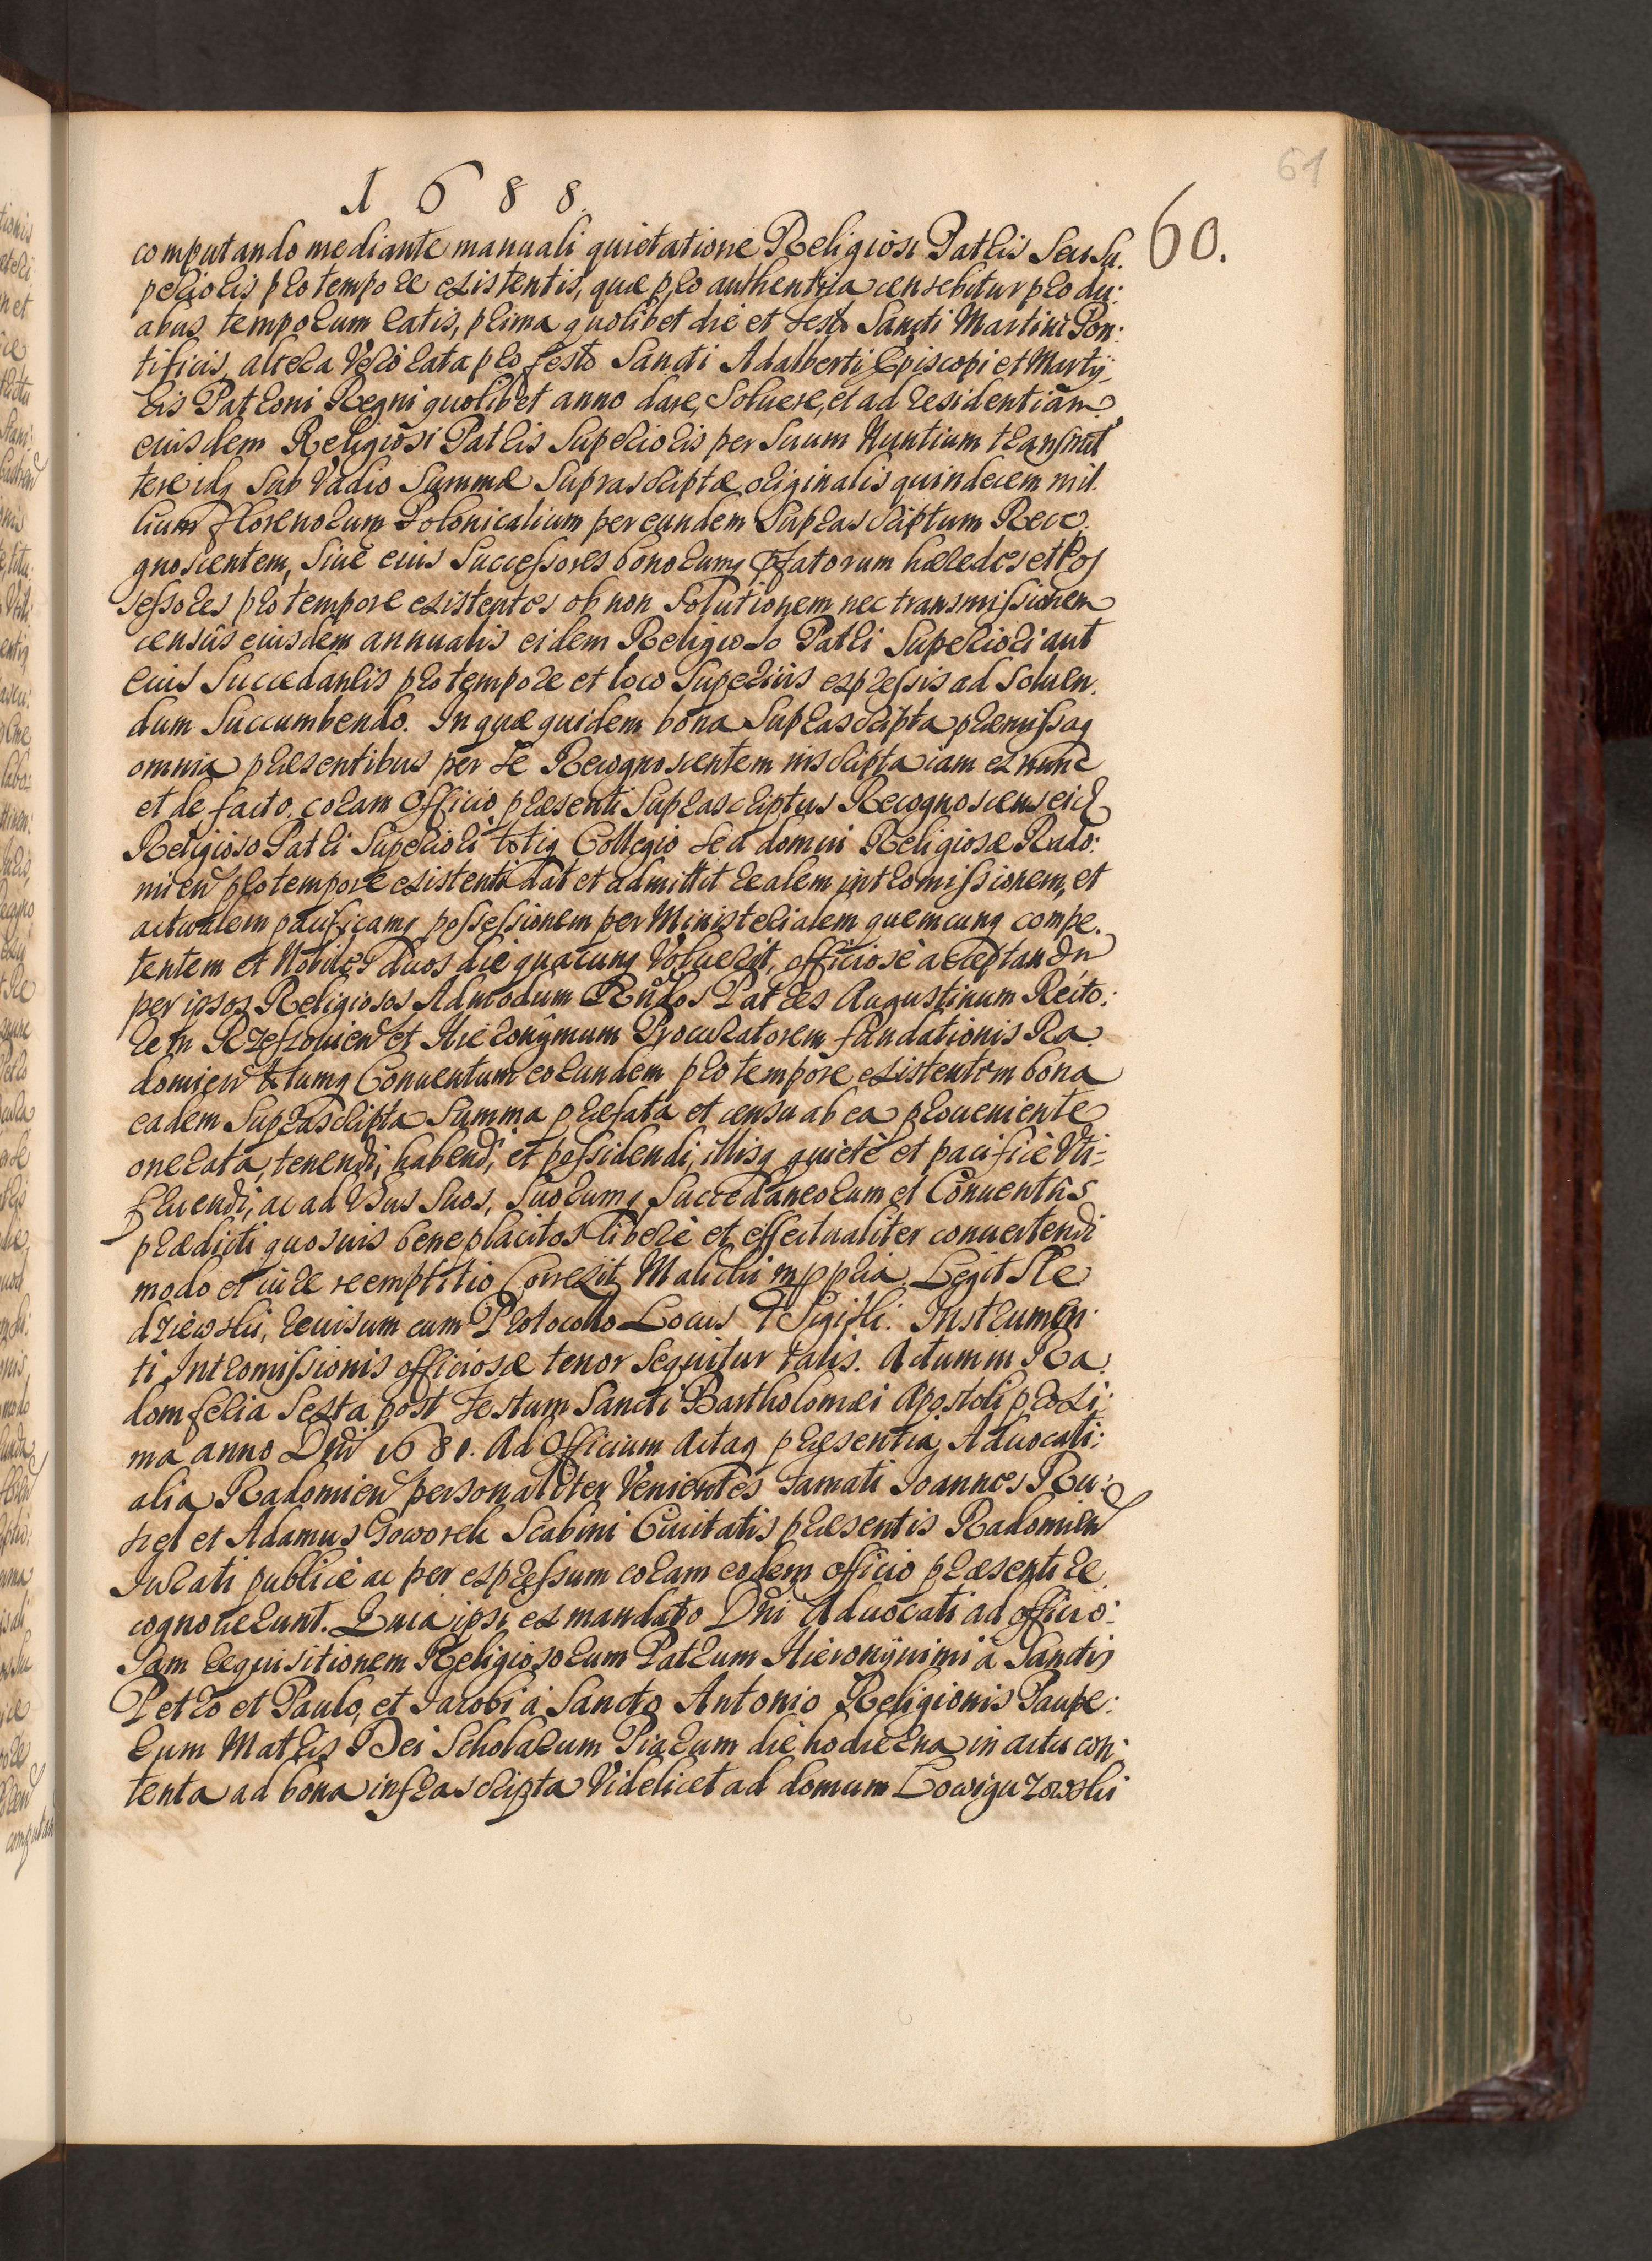 61
1688.
60.
computando mediante manuali quietatione Religiosi Patris seu Su.
perioris pro tempore existentis, quæ pro authentica censebitur pro du:
abus temporum ratis, prima quolibet die et festo Sancti Martini Pon:
tificis, altera Verò rata pro festo Sancti Adalberti Episcopi et Martÿ:
ris Patroni Regni quolibet anno dare, Soluere, et ad residentiam
eiusdem Religiosi Patris Superioris per Suum Nuntium transmit
tere idq Sub Vadio Summæ Suprascriptæ originalis quindecem mil.
lium florenorum Polonicalium per eundem Suprascriptum Reco.
gnoscentem, Siue eius Successores bonorumq pfatorum hæredes et Pos
sessores pro tempore existentes ob non Solutionem nec transmissionem
censûs eiusdem annualis eidem Religioso Patri Superiori aut
eius Succedaneis pro tempore et loco Superiùs expressis ad Soluen.
dum Succumbendo. In quæ quidem bona Suprascripta præmissaq
omnia præsentibus per se Recognoscentem inscripta iam ex nunc
et de facto, coram Officio præsenti Suprascriptus Recognoscens eid
Religioso Patri Superiori totiq Collegio seu domui Religiosæ Rado:
mien pro tempore existenti dat et admittit realem intromissionem, et
actualem pacificamq possessionem per Ministerialem quemcunq compe.
tentem et Nobiles duos die quacunq Voluerit, officiosè acceptandu
per ipsos Religiosos Admodum Rndos Patres Augustinum Recto:
rem Rzeszouien et Hieronÿmum Procuratorem fundationis Ra.
domien totumq Conuentum eorundem pro tempore existentem bona
eadem Suprascripta Summa præfata et censu ab ea proueniente
onerata, tenendi, habendi, et possidendi, illisq quietè et pacificè Vti=
fruendi, ac ad Vsus Suos, Suorumq Succedaneorum et Conuentûs
prædicti quosuis beneplacitos liberè et effectualiter conuertendi
modo et iure reemptitio Correxit Malicki mpp pria. Legit Sie
dziewski, reuisum cum Protocollo Locus Sigilli. Instrumen:
ti Intromissionis officiosæ tenor Sequitur talis. Actum in Ra.
dom feria Sexta post festum Sancti Bartholomæi Apostoli proxi:
ma anno Dni 1681. Ad Officium Actaq præsentia Aduocati:
alia Radomien personaliter Venientes famati Joannes Ru:
siel et Adamus Goworek Scabini Ciuitatis præsentis Radomien
Jurati publicè ac per expressum coram eodem officio præsenti re.
cognouerunt. Quia ipsi ex mandato Dni Aduocati ad officio:
sam requisitionem Religiosorum Patrum Hieronÿmi à Sanctis
Petro et Paulo, et Jacobi à Sancto Antonio Religionis Paupe:
rum Matris Dei Scholarum Piarum die hodierna in actu con:
tenta ad bona infrascripta Videlicet ad domum Lowiguzowski